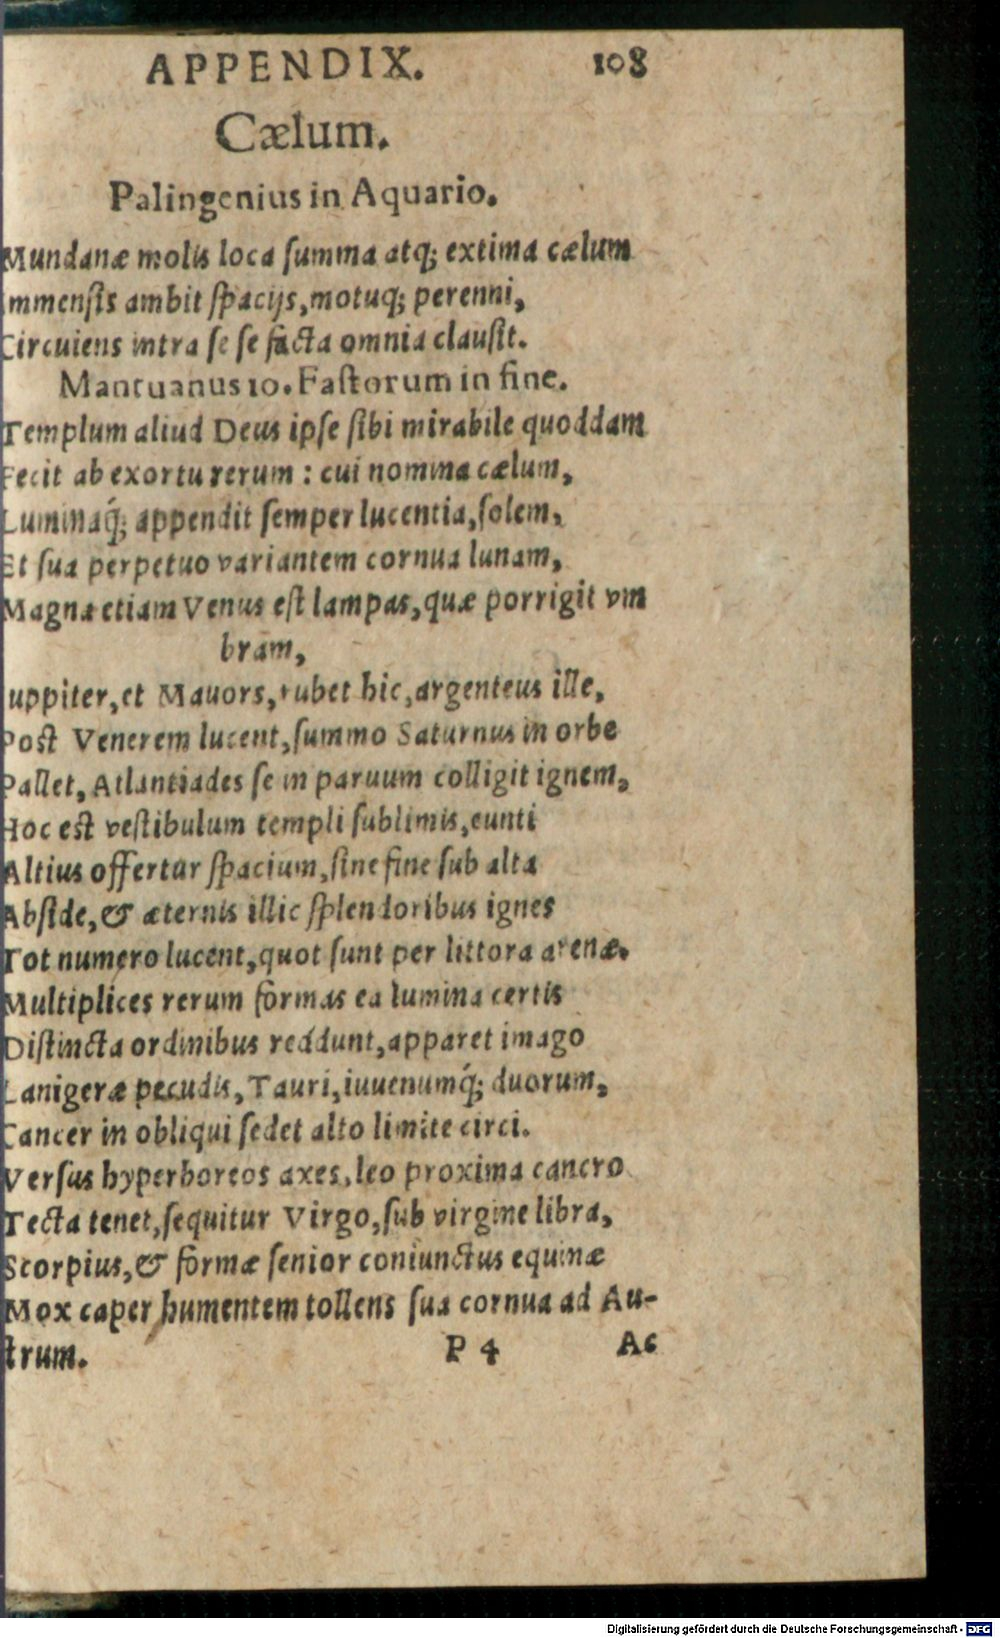 APPENDIX. 108
Cælum.
Palingenius in Aquario.
Mundanæ molis loca ſumma atq; extima cælum
mmenſis ambit ſpacijs, motuq; perenni,
Circuiens intra ſe ſe facta omnia clauſit.
Mantuanus 10. Faſtorum in fine.
Templum aliud Deus ipſe ſibi mirabile quoddam
Fecit ab exortu rerum : cui nomina cælum,
Luminaq́; appendit ſemper lucentia, ſolem,
Et ſua perpetuo variantem cornua lunam,
Magna etiam Venus eſt lampas, quæ porrigit vm
bram,
uppiter, et Mauors, rubet hic, argenteus ille,
Poſt Venerem lucent, ſummo Saturnus in orbe
Pallet, Atlantiades ſe in paruum colligit ignem,
Hoc eſt veſtibulum templi ſublimis, eunti
Altius offertur ſpacium, ſine fine ſub alta
Abſide, & æternis illic ſplendoribus ignes
Tot numero lucent, quot ſunt per littora arenæ.
Multiplices rerum formas ea lumina certis
Diſtincta ordinibus reddunt, apparet imago
Lanigeræ pecudis, Tauri, iuuenumq́; duorum,
Cancer in obliqui ſedet alto limite circi.
Verſus hyperboreos axes, leo proxima cancro
Tecta tenet, ſequitur Virgo, ſub virgine libra,
Scorpius, & formæ ſenior coniunctus equinæ
Mox caper humentem tollens ſua cornua ad Au-
ſtrum. P 4 Ac
Digitalisierung gefördert durch die Deutsche Forschungsgemeinschaft - DFG